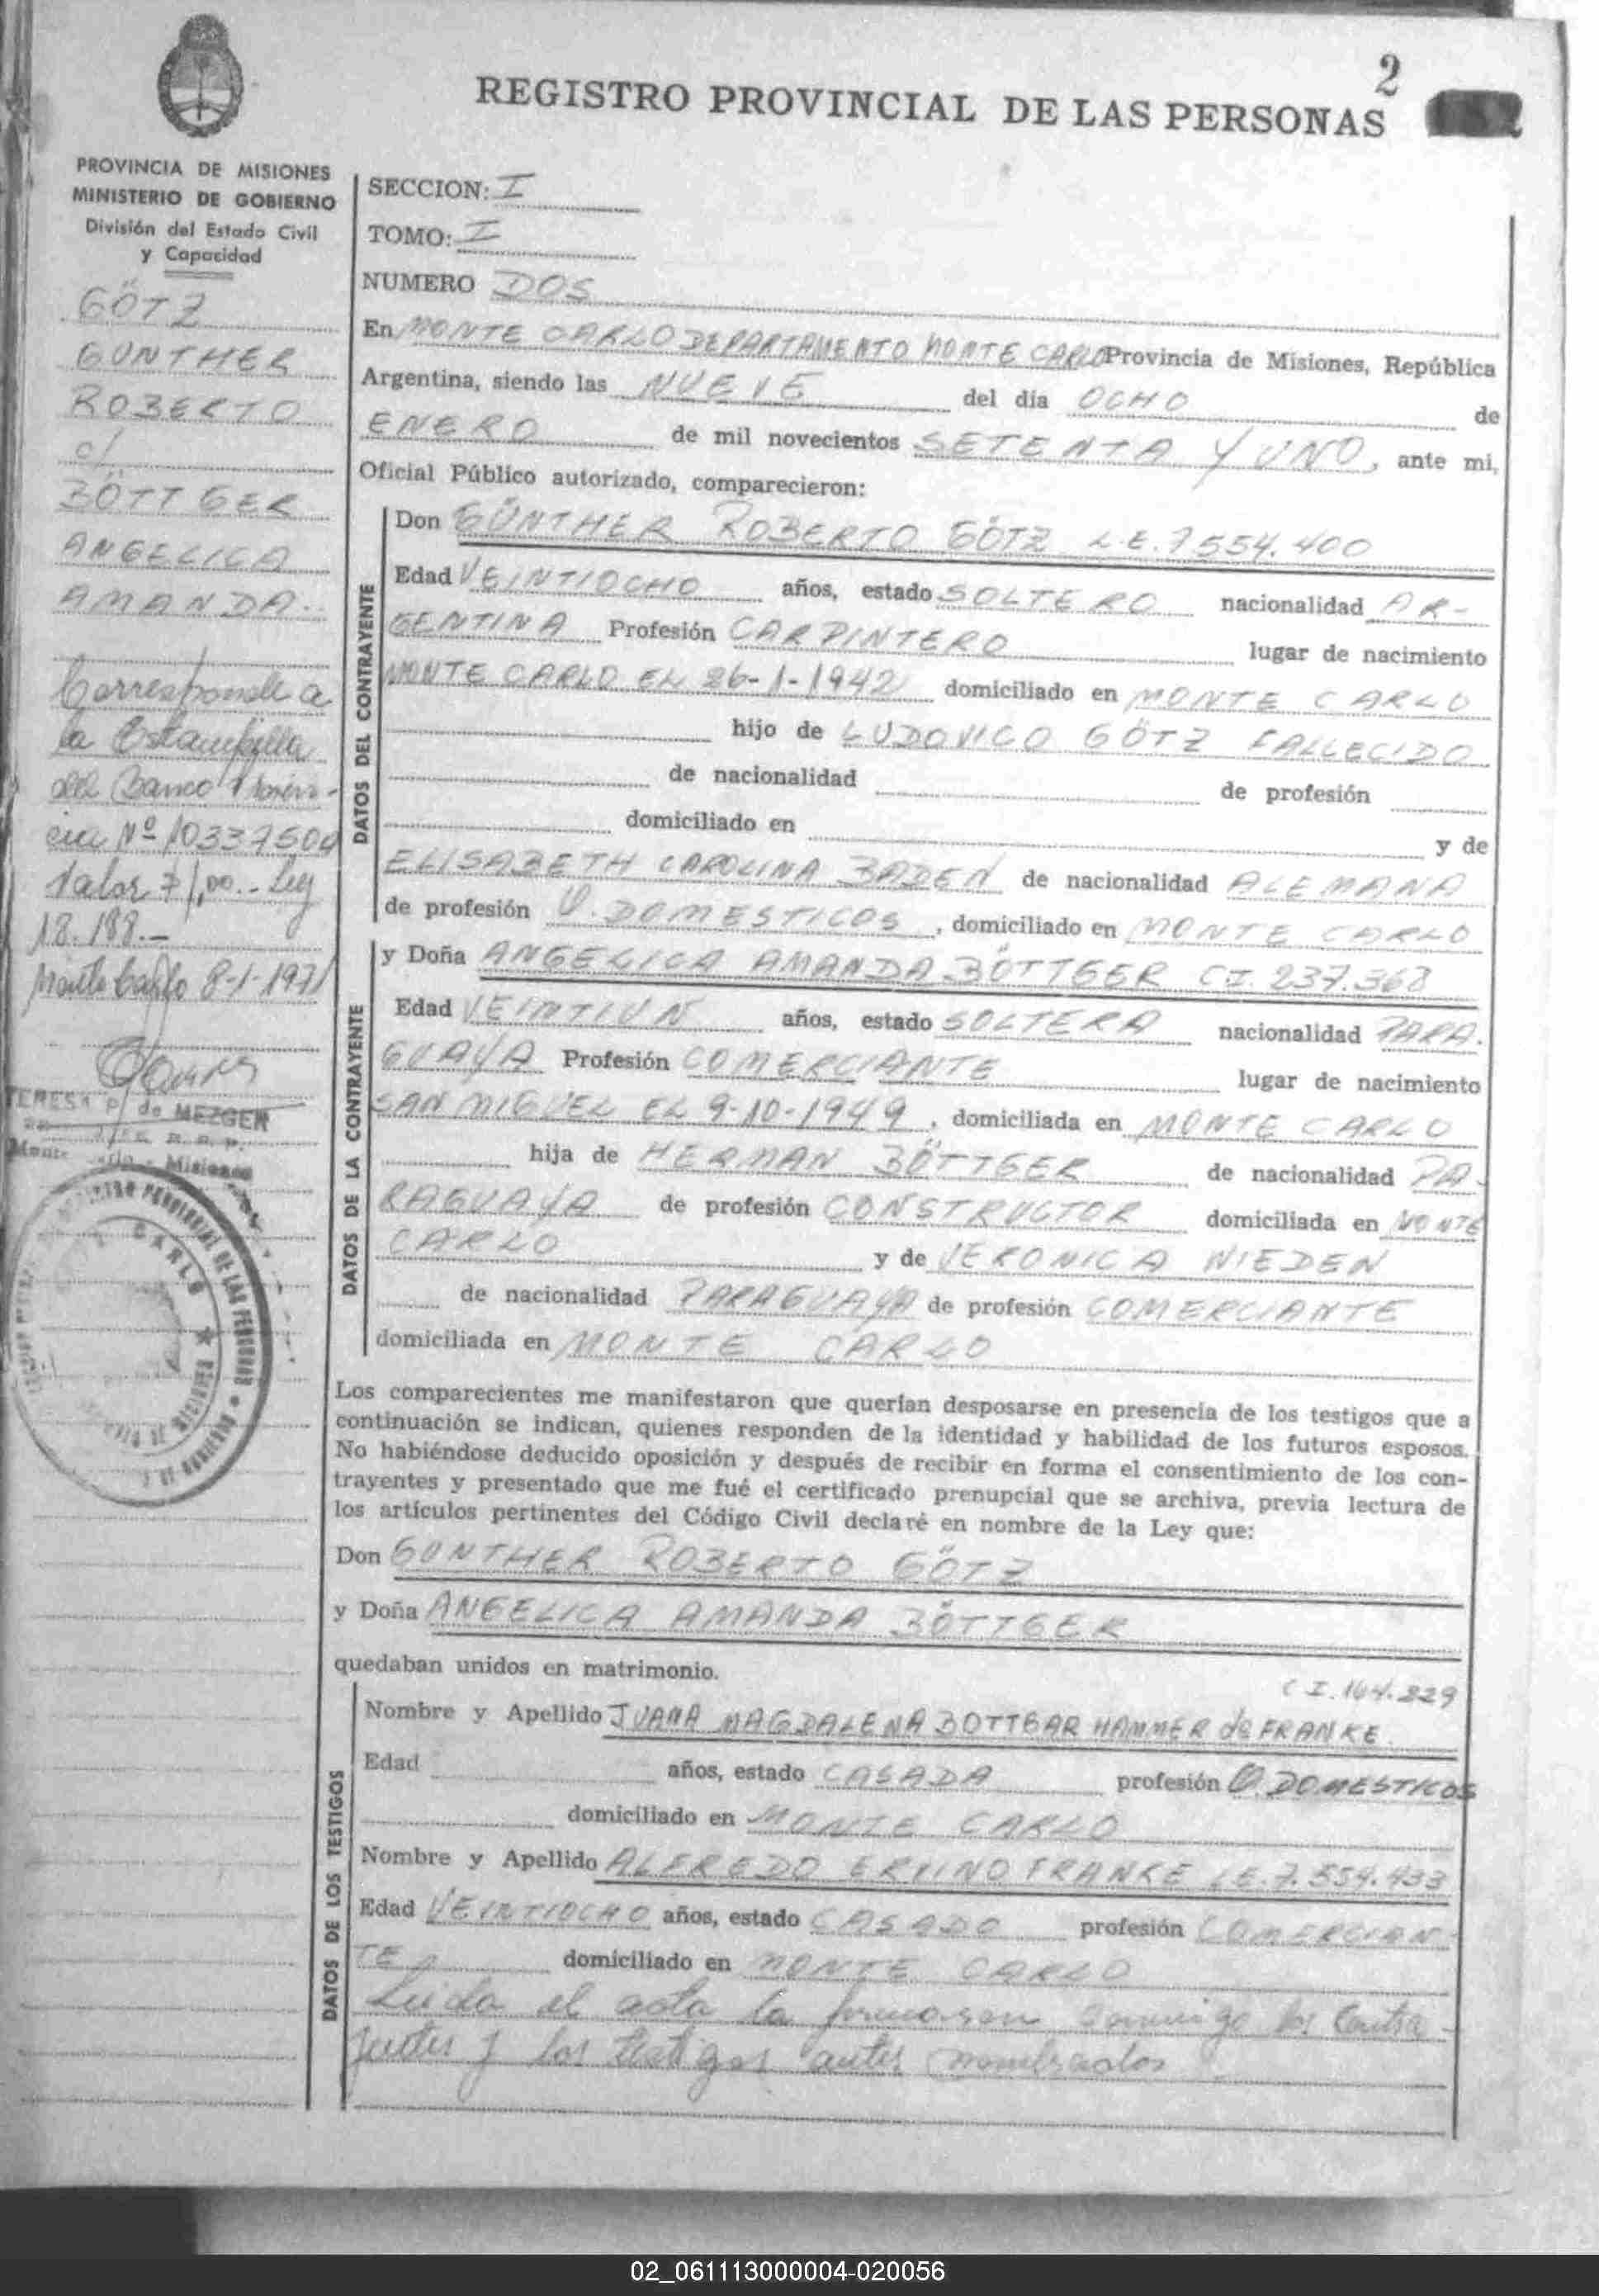 2
REGISTRO PROVINCIAL DE LAS PERSONAS
PROVINCIA DE MISIONES
MINISTERIO DE GOBIERNO
División del Estado Civil
y Capacidad
GÖTZ
GUNTHER
ROBERTO
c/
BÖTTGER
ANGELICA
AMANDA.-
Corresponde a
la Estampilla
del Banco Provin-
cia Nº 10337500
Valor $ 1,00.- Ley
18.188.-
Monte Carlo 8-1-1971
TERESA P. de MEZGER
Monte Carlo - Misiones
SECCION: I
TOMO: I
NUMERO DOS
En MONTE CARLO DEPARTAMENTO MONTE CARLO Provincia de Misiones, República
Argentina, siendo las NUEVE del día OCHO de
ENERO de mil novecientos SETENTA Y UNO, ante mi,
Oficial Público autorizado, comparecieron:
DATOS DEL CONTRAYENTE
Don GÜNTHER ROBERTO GÖTZ L.E. 7.554.400
Edad VEINTIOCHO años, estado SOLTERO nacionalidad AR-
GENTINA Profesión CARPINTERO lugar de nacimiento
MONTE CARLO EL 26-1-1942 domiciliado en MONTE CARLO
hijo de LUDOVICO GÖTZ FALLECIDO
de nacionalidad de profesión
domiciliado en y de
ELISABETH CAROLINA BADEN de nacionalidad ALEMANA
de profesión Q. DOMESTICOS, domiciliado en MONTE CARLO
DATOS DE LA CONTRAYENTE
y Doña ANGELICA AMANDA BÖTTGER C.I. 237.368
Edad VEINTIUN años, estado SOLTERA nacionalidad PARA-
GUAYA Profesión COMERCIANTE lugar de nacimiento
SAN MIGUEL EL 9-10-1949, domiciliada en MONTE CARLO
hija de HERMAN BÖTTGER de nacionalidad PA-
RAGUAYA de profesión CONSTRUCTOR domiciliada en MONTE
CARLO y de VERONICA NIEDEN
de nacionalidad PARAGUAYA de profesión COMERCIANTE
domiciliada en MONTE CARLO
Los comparecientes me manifestaron que querían desposarse en presencia de los testigos que a
continuación se indican, quienes responden de la identidad y habilidad de los futuros esposos.
No habiéndose deducido oposición y después de recibir en forma el consentimiento de los con-
trayentes y presentado que me fué el certificado prenupcial que se archiva, previa lectura de
los artículos pertinentes del Código Civil declaré en nombre de la Ley que:
Don GUNTHER ROBERTO GÖTZ
y Doña ANGELICA AMANDA BÖTTGER
quedaban unidos en matrimonio.
DATOS DE LOS TESTIGOS
C I. 164.229
Nombre y Apellido JUANA MAGDALENA BOTTGAR HAMMER de FRANKE
Edad años, estado CASADA profesión Q. DOMESTICOS
domiciliado en MONTE CARLO
Nombre y Apellido ALFREDO ERVINO FRANKE L.E. 7.554.433
Edad VEINTIOCHO años, estado CASADO profesión COMERCIAN-
TE domiciliado en MONTE CARLO
Leida el acta la firmaron conmigo los contra-
yentes y los testigos antes nombrados
02_061113000004-020056